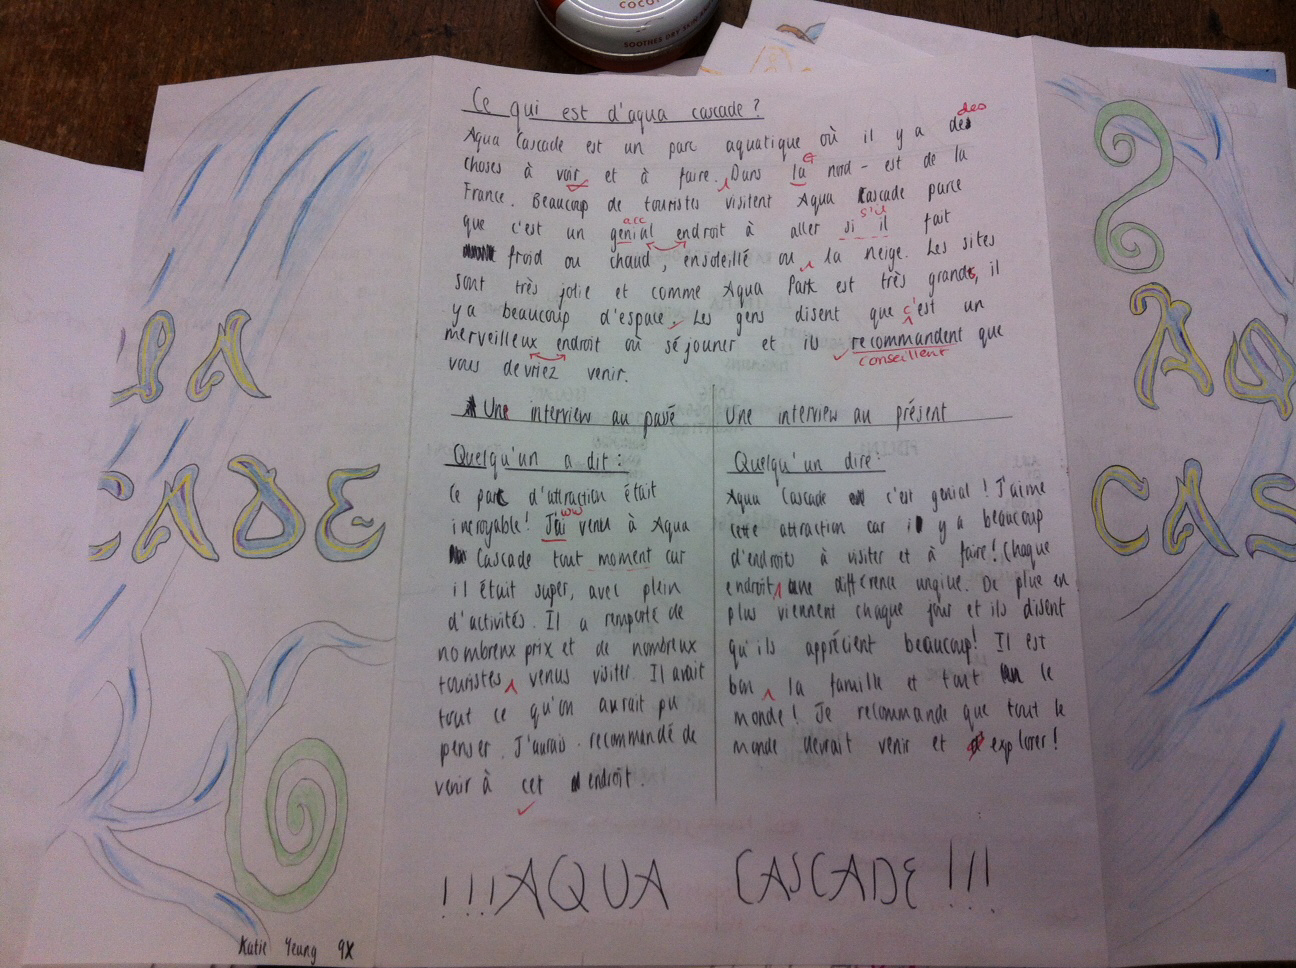 COCO
SOOTHES DRY
Ce qui est d'aqua cascade?
des
Aqua Cascade est un parc aquatique où il y a des
choses à voir et à faire. Dans la nord-est de la
France. Beaucoup de touristes visitent Aqua Cascade parce
acc s'il
que c'est un genial endroit à aller si il fait
froid ou chaud, ensoleillé ou la neige. Les sites
sont très jolie et comme Aqua Park est très grand, il
y a beaucoup d'espace. Les gens disent que c'est un
merveilleux endroit où séjouner et ils recommandent que
conseillent
vous devriez venir.
Une interview au passé
Quelqu'un a dit:
Ce parc d'attraction était
incroyable! J'ai venu à Aqua
ww
Cascade tout moment car
il était super, avec plein
d'activités. Il a remporté de
nombreux prix et de nombreux
touristes venus visiter. Il avait
tout ce qu'on aurait pu
penser. J'aurais recommandé de
venir à cet endroit.
Une interview au présent
Quelqu'un dire:
Aqua Cascade c'est genial! J'aime
cette attraction car il y a beaucoup
d'endroits à visiter et à faire! Chaque
endroit une différence unqiue. De plue en
plus viennent chaque jour et ils disent
qu'ils apprécient beaucoup! Il est
bon la famille et tout le
monde! Je recommande que tout le
monde devrait venir et explorer!
!!!AQUA CASCADE!!!
UA
CADE
AQ
CAS
Katie Yeung 9X